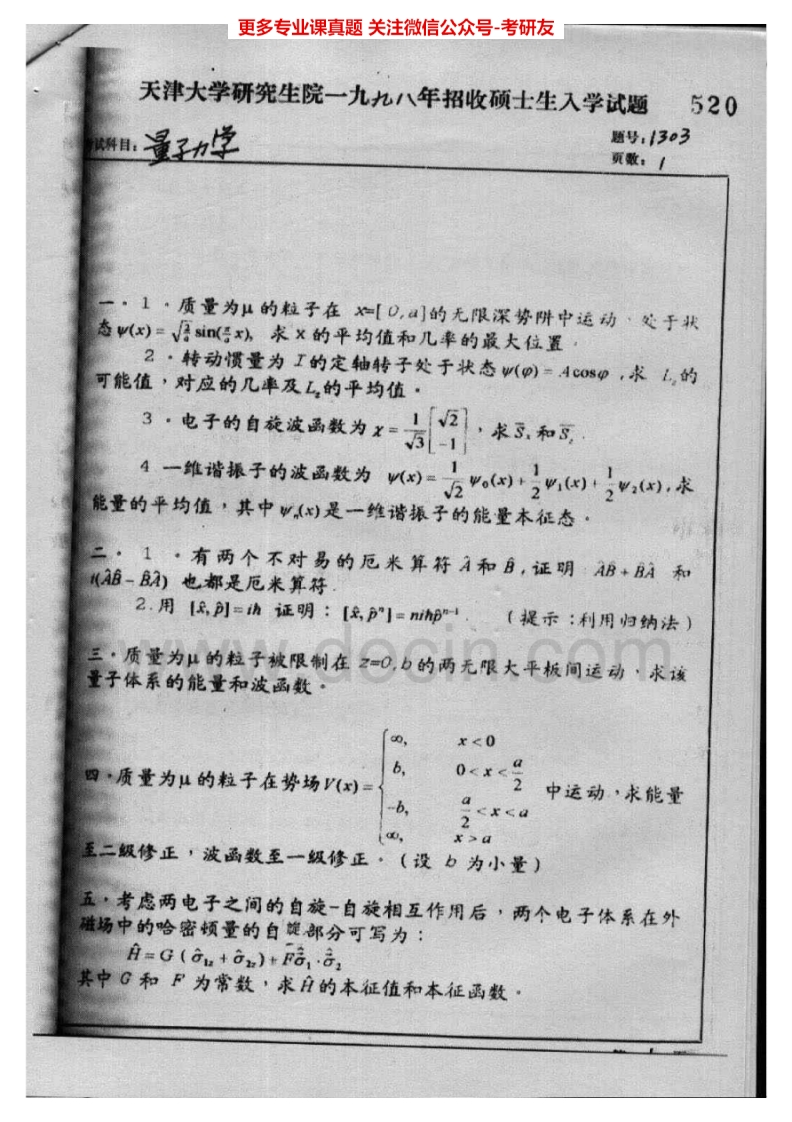 更多专业课真题 关注微信公众号-考研友
天津大学研究生院一九九八年招收硕士生入学试题 520
试科目：量子力学 题号：1303
页数：1
一．1．质量为μ的粒子在 x=[0,a]的无限深势阱中运动、处于状
态ψ(x)=√(2/a) sin(π/a x), 求x的平均值和几率的最大位置．
2．转动惯量为I的定轴转子处于状态ψ(φ)=Acosφ,求 L_z的
可能值，对应的几率及L_z的平均值．
3．电子的自旋波函数为χ=1/√3 [√2 -1]，求S̄_x和S̄_z.
4 一维谐振子的波函数为 ψ(x)=1/√2 ψ₀(x)+1/2 ψ₁(x)+1/2 ψ₂(x),求
能量的平均值，其中ψ_n(x)是一维谐振子的能量本征态．
二．1．有两个不对易的厄米算符Â和B̂,证明 ÂB̂+B̂Â 和
i(ÂB̂-B̂Â) 也都是厄米算符.
2.用 [x̂,p̂]=iħ 证明：[x̂,p̂ⁿ]=niħp̂ⁿ⁻¹. （提示：利用归纳法）
www.docin.com
三．质量为μ的粒子被限制在 z=0,b的两无限大平板间运动，求该
量子体系的能量和波函数．
四．质量为μ的粒子在势场V(x)={∞, x<0
b, 0<x<a/2
-b, a/2<x<a
∞, x>a
中运动，求能量
至二级修正，波函数至一级修正．（设 b 为小量）
五，考虑两电子之间的自旋-自旋相互作用后，两个电子体系在外
磁场中的哈密顿量的自旋部分可写为：
Ĥ=G(σ̂₁z+σ̂₂z)+Fσ̂₁·σ̂₂
其中G和 F 为常数，求Ĥ的本征值和本征函数．